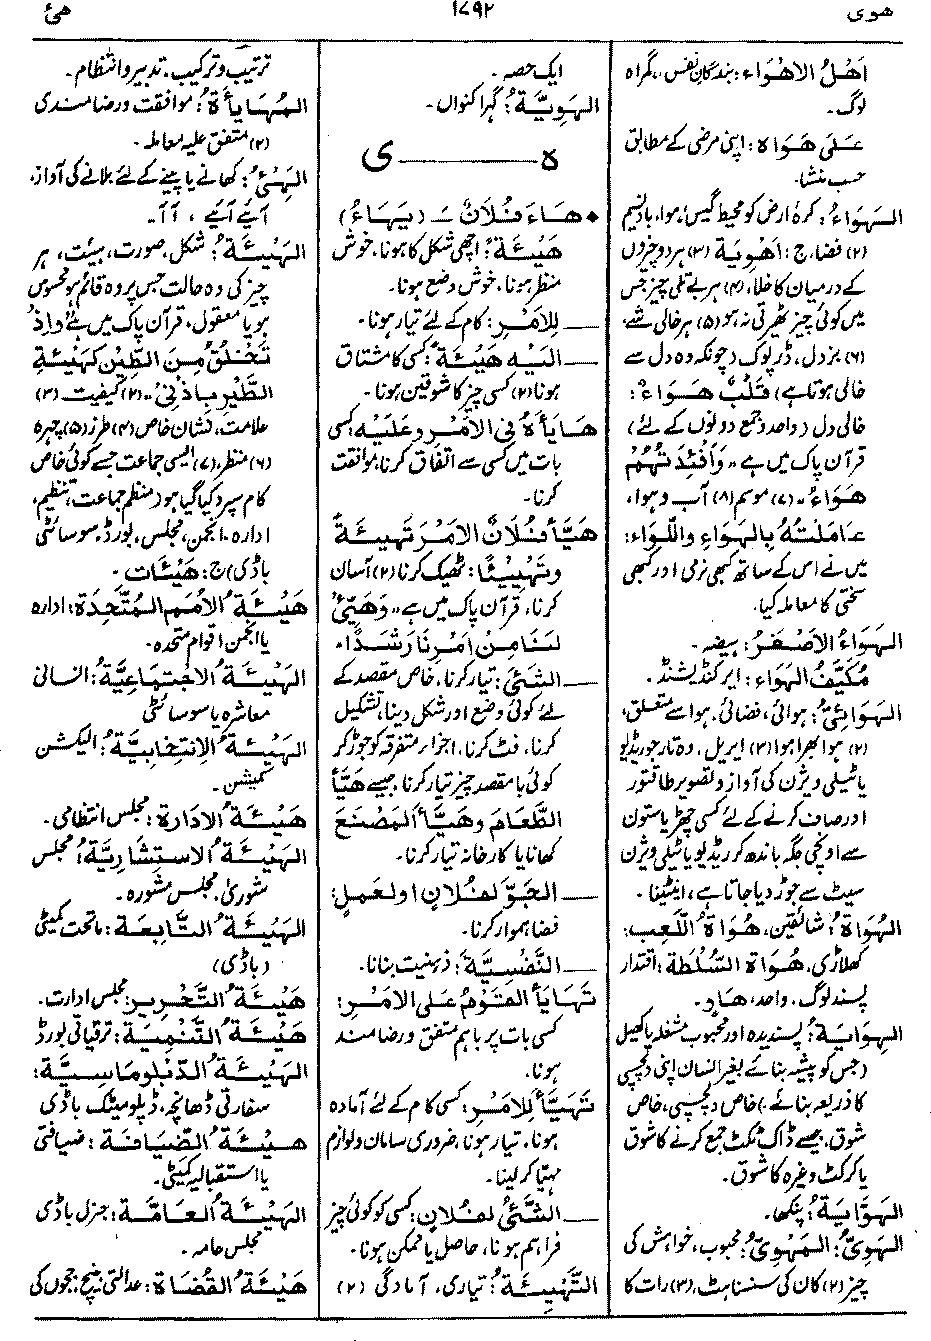 ھوی
۱۷۹۲
ھئ
اَھْلُ الاَھْوَاء: بندگانِ نفس، گمراہ
لوگ۔
عَلیٰ ھَوَاہ: اپنی مرضی کے مطابق
حسب منشا۔
الھَوَاءُ: کرۂ ارض کو محیط گیس، ہوا، بادِ نسیم
(۲) فضا، ج: اَھْوِیَة (۳) ہر دو چیزوں
کے درمیان کا خلا، (۴) ہر بے تکی چیز جس
میں کوئی چیز ٹھہرتی نہ ہو (۵) ہر خالی شے،
(۶) بزدل، ڈرپوک (چونکہ وہ دل سے
خالی ہوتا ہے) قَلْبٌ ھَوَاء:
خالی دل (واحد و جمع دونوں کے لئے)
قرآن پاک میں ہے "وَاَفْئِدَتُھُمْ
ھَوَاءٌ"۔ (۷) موسم (۸) آب و ہوا،
عَامَلْتُهُ بِالھَوَاءِ وَاللِّوَاءِ:
میں نے اس کے ساتھ کبھی نرمی اور کبھی
سختی کا معاملہ کیا۔
الھَوَاءُ الاَصْفَرُ: ہیضہ۔
مُکَیِّفُ الھَوَاءِ: ایرکنڈیشنڈ۔
الھَوَائِیُّ: ہوائی، فضائی، ہوا سے متعلق،
(۲) ہوا بھرا ہوا (۳) ایریل، وہ تار جو ریڈیو
یا ٹیلی ویژن کی آواز و تصویر طاقتور
اور صاف کرنے کے لئے کسی چھڑ یا ستون
سے اونچی جگہ باندھ کر ریڈیو یا ٹیلی ویژن
سیٹ سے جوڑ دیا جاتا ہے، اینٹینا۔
الھُوَاةُ: شائقین، ھُوَاةُ اللَّعِب:
کھلاڑی، ھُوَاةُ السُّلْطَة: اقتدار
پسند لوگ۔ واحد، ھَاوٍ۔
الھِوَایَةُ: پسندیدہ اور محبوب مشغلہ یا کھیل
(جس کو پیشہ بنائے بغیر انسان اپنی دلچسپی
کا ذریعہ بنائے۔) خاص دلچسپی، خاص
شوق، جیسے ڈاک ٹکٹ جمع کرنے کا شوق
یا کرکٹ وغیرہ کا شوق۔
الھَوَّایَةُ: پنکھا۔
الھَوِیُّ: المَھْوِیُّ: محبوب، خواہش کی
چیز (۲) کان کی سنسناہٹ، (۳) رات کا
ایک حصہ۔
الھَوِیَّةُ: گہرا کنواں۔
ہ——ی
• ھَاءَ فُلَانٌ ـَ (یَھَاءُ)
ھَیْئَةً: اچھی شکل کا ہونا، خوش
منظر ہونا، خوش وضع ہونا۔
— لِلاَمْرِ: کام کے لئے تیار ہونا۔
— اِلَیْهِ ھِیْئَةً: کسی کا مشتاق
ہونا (۲) کسی چیز کا شوقین ہونا۔
ھَایَأَہُ فِی الاَمْرِ وَعَلَیْهِ: کسی
بات میں کسی سے اتفاق کرنا، موافقت
کرنا۔
ھَیَّأَ فُلَانٌ الاَمْرَ تَھْیِئَةً
وتَھْیِیْئًا: ٹھیک کرنا (۲) آسان
کرنا، قرآن پاک میں ہے "وَھَیِّئْ
لَنَا مِنْ اَمْرِنَا رَشَدًا"۔
— الشَّیْءَ: تیار کرنا، خاص مقصد کے
لئے کوئی وضع اور شکل دینا، تشکیل
کرنا، فٹ کرنا، اجزاء متفرقہ کو جوڑ کر
کوئی با مقصد چیز تیار کرنا، جیسے ھَیَّأَ
الطَّعَامَ وھَیَّأَ المَصْنَعَ
کھانا یا کارخانہ تیار کرنا۔
— الجَوَّ لفُلَانٍ اولِعَملٍ:
فضا ہموار کرنا۔
— النَّفْسِیَّةَ: ذہنیت بنانا۔
تَھَایَأَ القَوْمُ عَلَی الاَمْرِ:
کسی بات پر باہم متفق و رضا مند
ہونا۔
تَھَیَّأَ لِلاَمْرِ: کسی کام کے لئے آمادہ
ہونا، تیار ہونا، ضروری سامان و لوازم
مہیا کرلینا۔
— الشَّیْءُ لفُلَانٍ: کسی کو کوئی چیز
فراہم ہونا، حاصل یا ممکن ہونا۔
التَّھْیِئَةُ: تیاری، آمادگی (۲)
ترتیب و ترکیب، تدبیر و انتظام۔
المُھَایَأَةُ: موافقت و رضا مندی
(۲) متفق علیہ معاملہ۔
الھَیْءُ: کھانے یا پینے کے لئے بلانے کی آواز،
آیئے آیئے، آ آ۔
الھَیْئَةُ: شکل، صورت، ہیئت، ہر
چیز کی وہ حالت جس پر وہ قائم ہو محسوس
ہو یا معقول، قرآن پاک میں ہے "وَاِذْ
تَخْلُقُ مِنَ الطِّیْنِ کَھَیْئَةِ
الطَّیْرِ بِاِذْنِیْ"۔ (۲) کیفیت (۳)
علامت، نشان خاص (۴) طرز (۵) چہرہ
(۶) منظر، (۷) ایسی جماعت جسے کوئی خاص
کام سپرد کیا گیا ہو (منظم جماعت، تنظیم،
ادارہ، انجمن، مجلس، بورڈ، سوسائٹی
باڈی) ج: ھَیْئَات۔
ھَیْئَةُ الاُمَمِ المُتَّحِدَة: ادارہ
یا انجمن اقوام متحدہ۔
الھَیْئَةُ الاِجْتِمَاعِیَّةُ: انسانی
معاشرہ یا سوسائٹی
الھَیْئَةُ الاِنْتِخَابِیَّةُ: الیکشن
کمیشن۔
ھَیْئَةُ الاِدَارَة: مجلس انتظامی۔
الھَیْئَةُ الاِسْتِشَارِیَّةُ: مجلس
شوریٰ، مجلس مشورہ۔
الھَیْئَةُ التَّابِعَة: ماتحت کمیٹی
(باڈی)
ھَیْئَةُ التَّحْرِیْرِ: مجلس ادارت۔
ھَیْئَةُ التَّنْمِیَة: ترقیاتی بورڈ
الھَیْئَةُ الدِّبْلُومَاسِیَّةُ:
سفارتی ڈھانچہ، ڈپلومیٹک باڈی
ھَیْئَةُ الضِّیَافَة: ضیافتی
یا استقبالیہ کمیٹی۔
الھَیْئَةُ العَامَّة: جنرل باڈی
مجلس عامہ۔
ھَیْئَةُ القُضَاة: عدالتی بینچ، ججوں کی